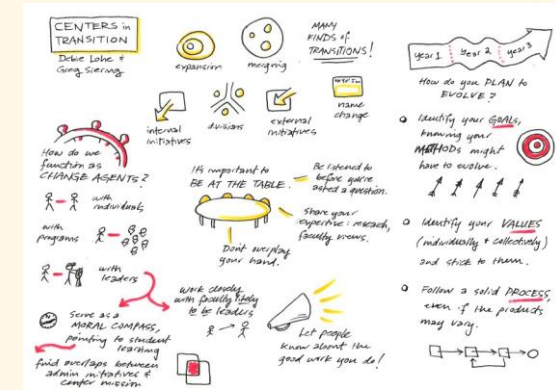 CENTERS in
TRANSITION
Debie Lohe &
Greg Siering
MANY
KINDS of
TRANSITIONS!
expansion
merging
internal
initiatives
divisions
external
initiatives
name
change
How do we
function as
CHANGE AGENTS?
with
individuals
with
programs
with
leaders
Serve as a
MORAL COMPASS,
pointing to student
learning
find overlaps between
admin initiatives &
center mission
It's important to
BE AT THE TABLE.
Be listened to
before you're
asked a question.
Share your
expertise: research,
faculty views.
Don't overplay
your hand.
Work closely
with faculty likely
to be leaders
Let people
know about the
good work you do!
year 1
year 2
year 3
How do you PLAN to
EVOLVE?
Identify your GOALS,
knowing your
METHODs might
have to evolve.
Identify your VALUES
(individually + collectively)
and stick to them.
Follow a solid PROCESS,
even if the products
may vary.